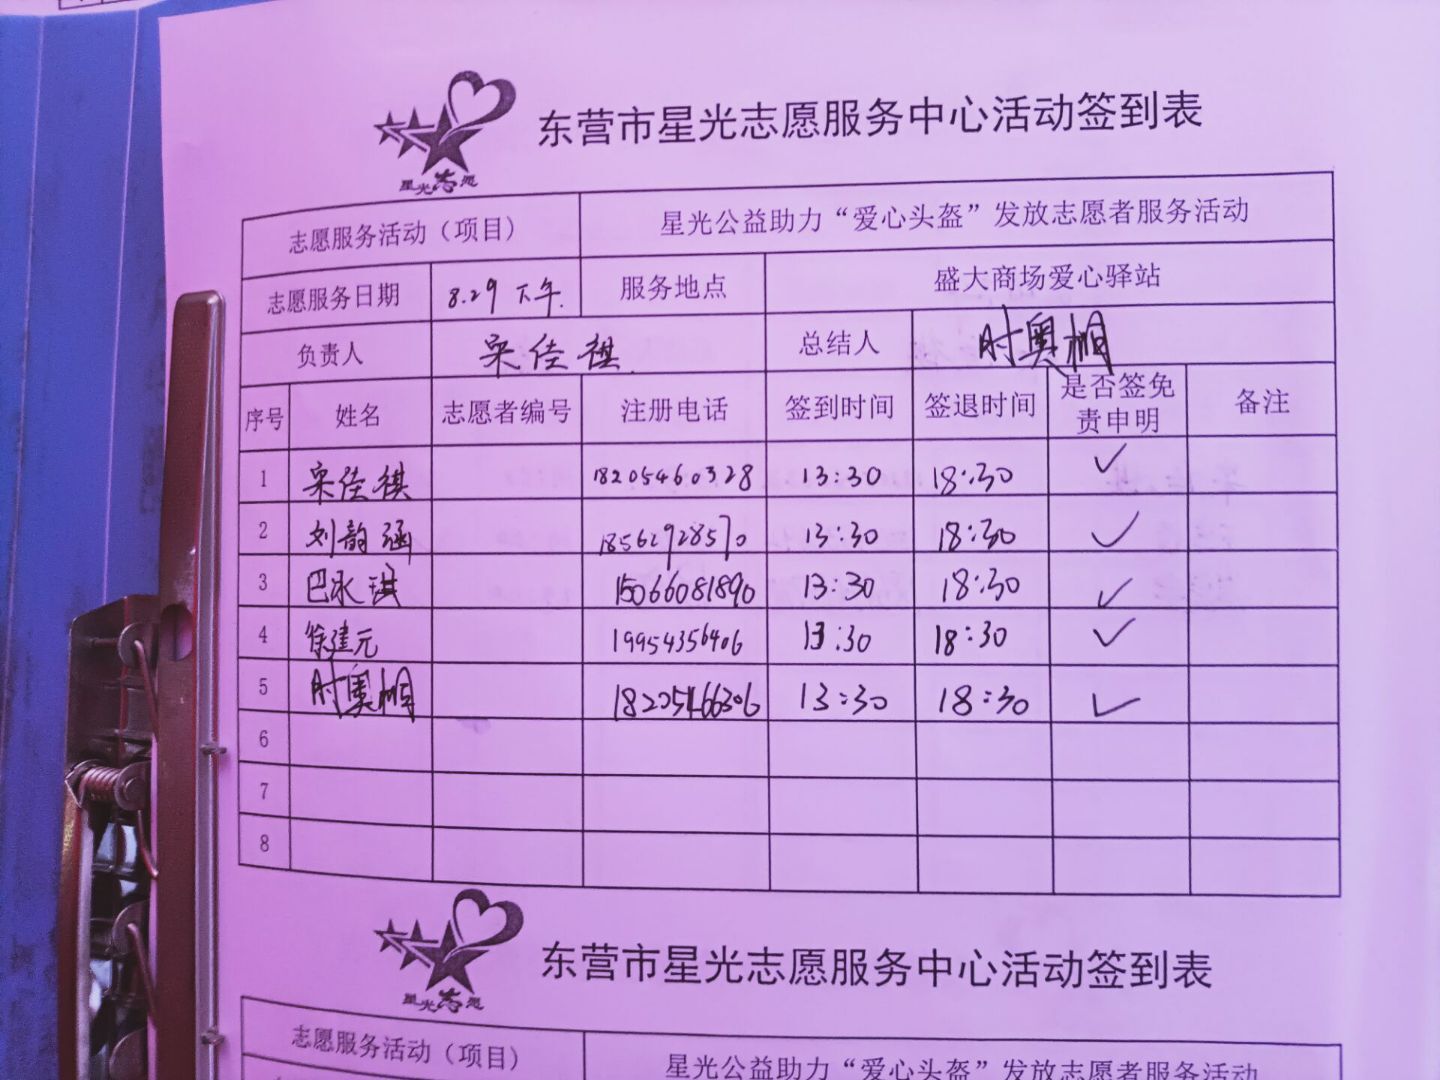 东营市星光志愿服务中心活动签到表
星光志愿
志愿服务活动（项目） 星光公益助力“爱心头盔”发放志愿者服务活动
志愿服务日期 8.29 下午. 服务地点 盛大商场爱心驿站
负责人 宋佳祺. 总结人 时奥栩
序号 姓名 志愿者编号 注册电话 签到时间 签退时间 是否签免责申明 备注
1 宋佳祺 18205460328 13:30 18:30 ✓
2 刘韵涵 18562928570 13:30 18:30 ✓
3 巴永琪 15066081890 13:30 18:30 ✓
4 徐建元 19954356406 13:30 18:30 ✓
5 时奥栩 18205466306 13:30 18:30 ✓
6
7
8
东营市星光志愿服务中心活动签到表
星光志愿
志愿服务活动（项目） 星光公益助力“爱心头盔”发放志愿者服务活动